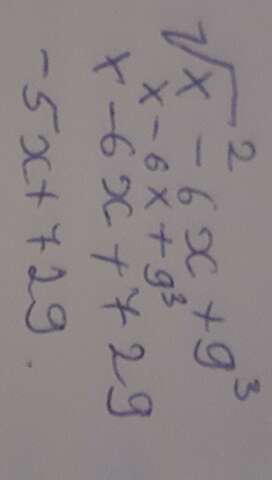 √x² - 6x + 9³
x - 6x + 9³
x - 6x + 729
-5x + 729.